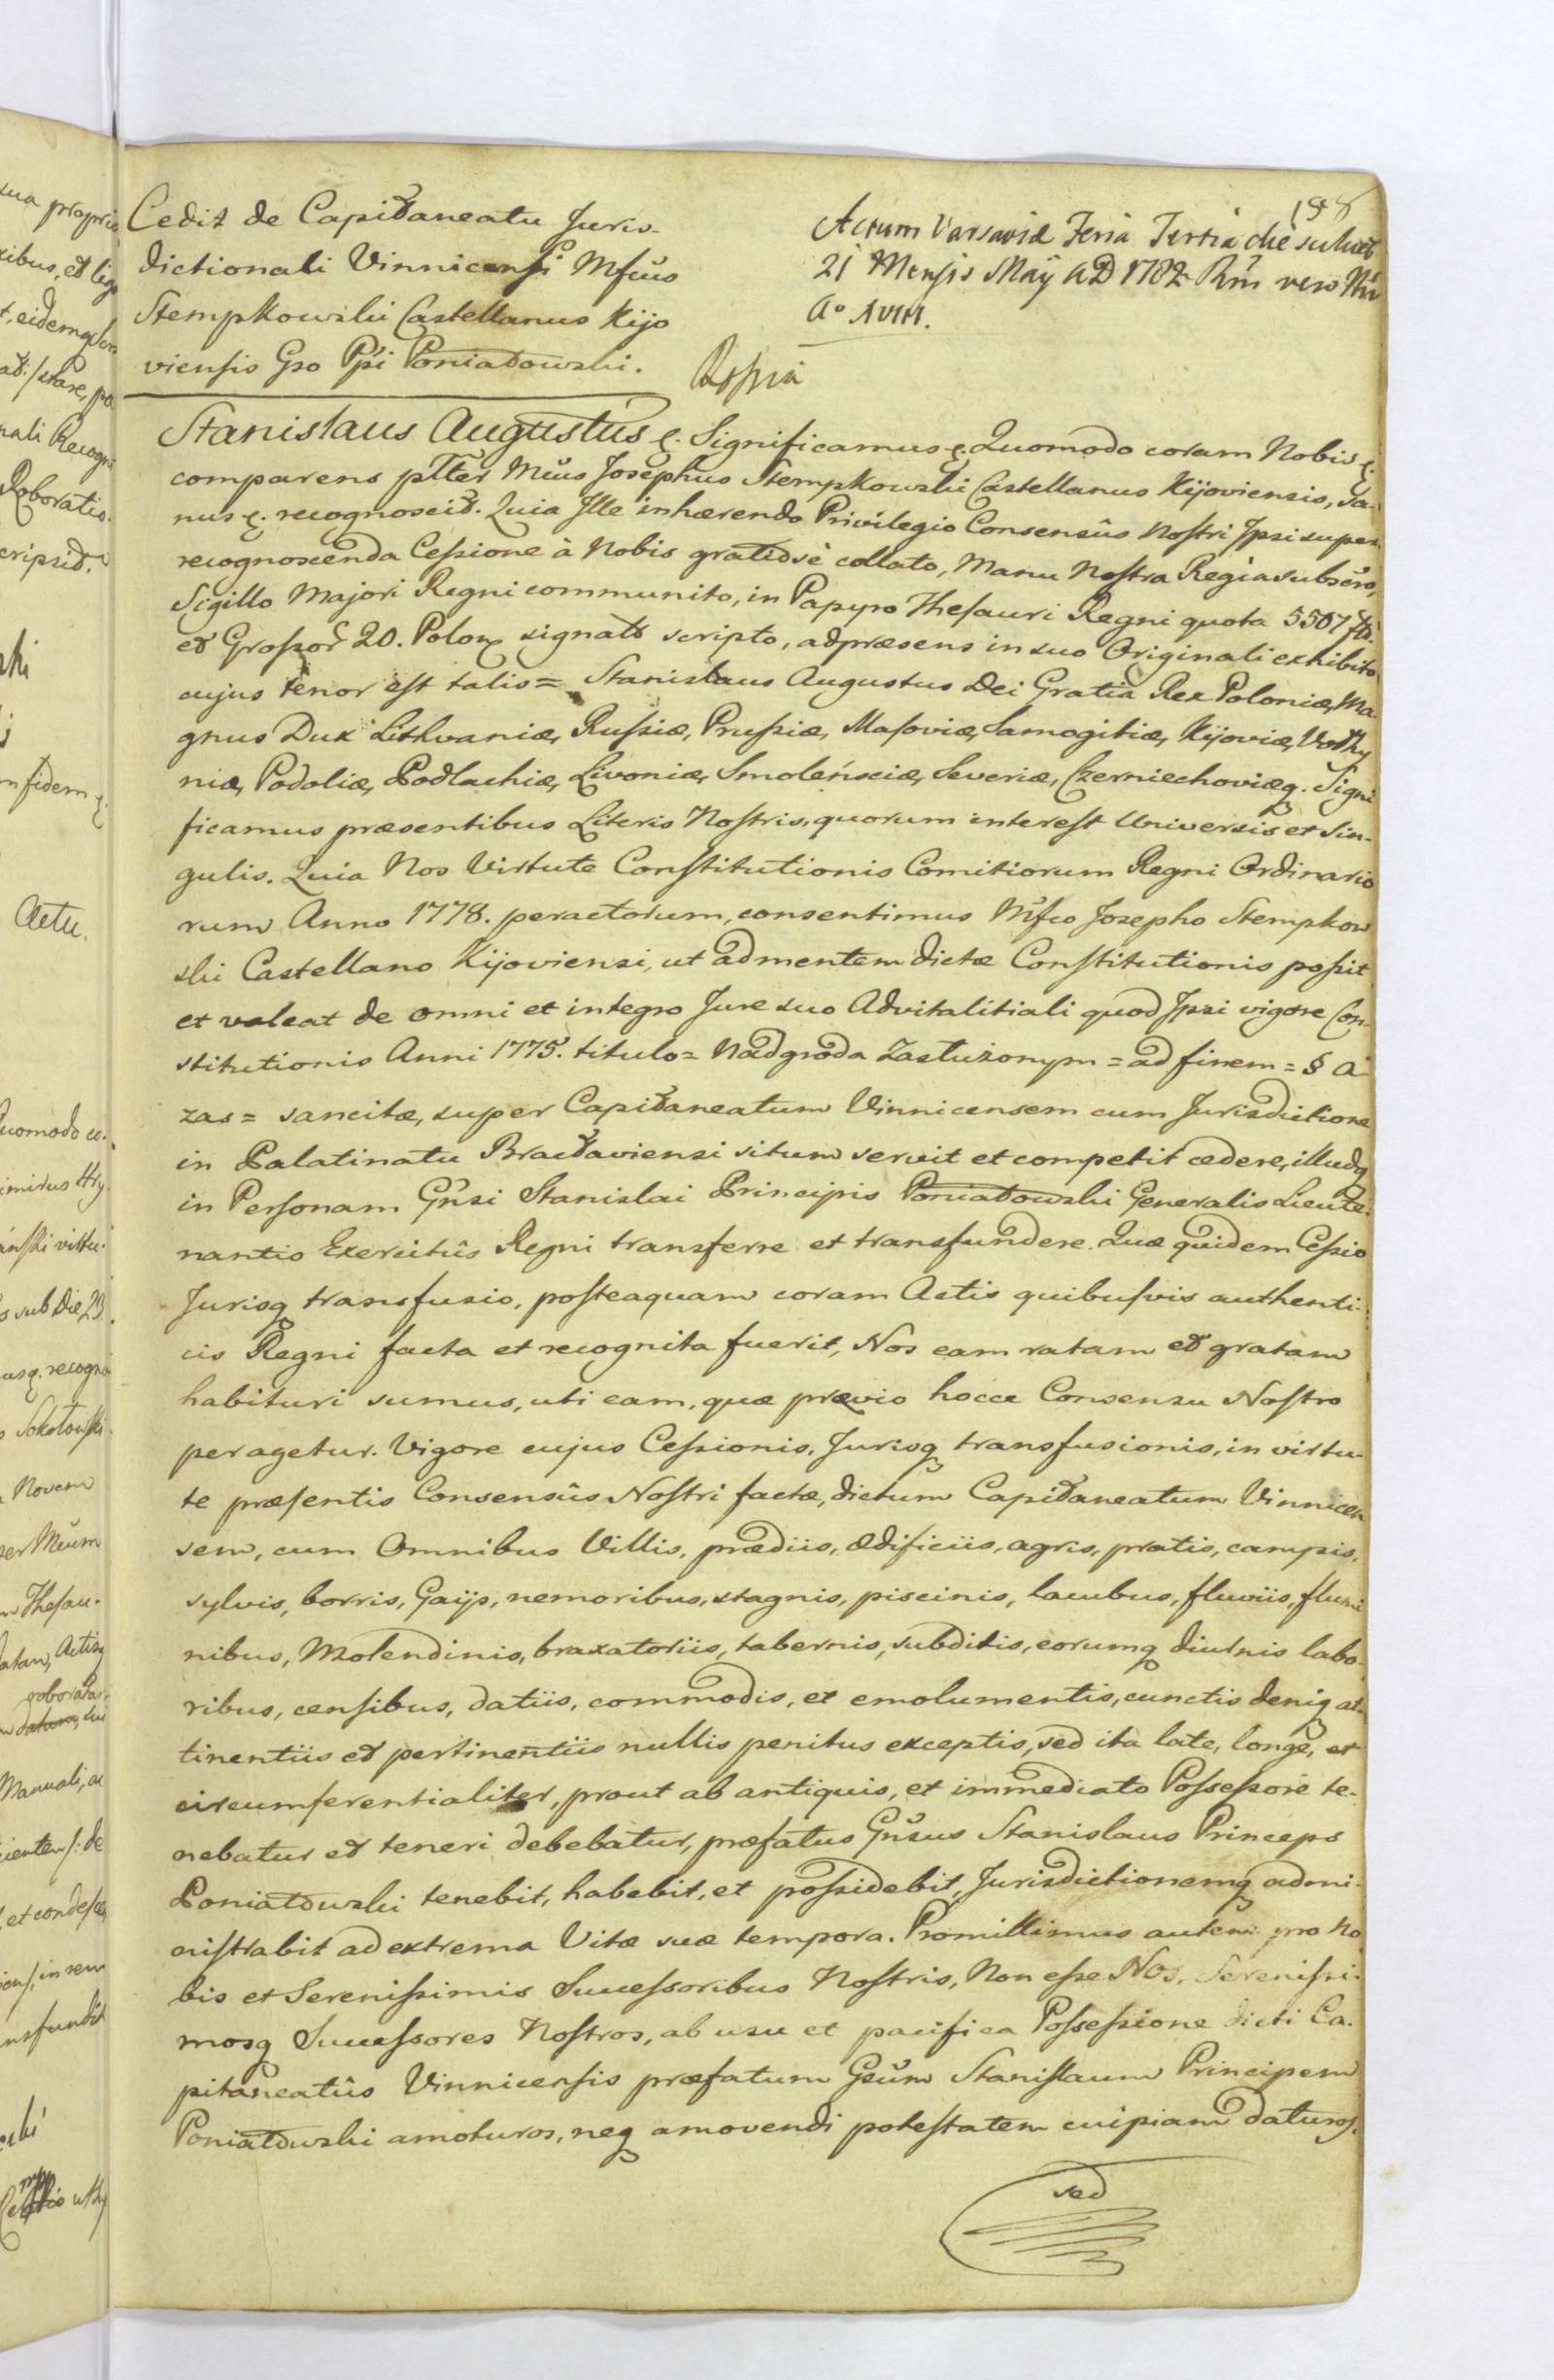 Cedit de Capitaneatu Juris-
dictionali Vinnicensi Mfcus
Stempkowski Castellanus Kijo
viensis Gso Ppi Poniatowski.
188
Actum Varsaviæ Feria Tertia die scilicet
21 Mensis Maÿ AD 1782 Rni vero Nri
Ao XVIII.
Rossia
Stanislaus Augustus &. Significamus &. Quomodo coram Nobis &.
comparens pltter Mcus Josephus Stempkowski Castellanus Kijoviensis, sa-
nus &. recognoscit. Quia Ille inhærendo Privilegio Consensûs Nostri Ipsi super
recognoscenda Cessione à Nobis gratiose collato, Manu Nostra Regia subscro,
Sigillo Majori Regni communito, in Papyro Thesauri Regni quota 5507 flo.
et Grossor 20. Polon signato scripto, ad præsens in suo Originali exhibito
cujus tenor est talis = Stanislaus Augustus Dei Gratia Rex Poloniæ, Ma-
gnus Dux Lithvaniæ, Russiæ, Prussiæ, Masoviæ, Samogitiæ, Kijoviæ, Volhy
niæ, Podoliæ, Podlachiæ, Livoniæ, Smolensciæ, Severiæ, Czerniechoviæq. Signi
ficamus præsentibus Literis Nostris, quorum interest Universis et Sin-
gulis. Quia Nos Virtute Constitutionis Comitiorum Regni Ordinario
rum Anno 1778. peractorum, consentimus Mfco Josepho Stempkow
ski Castellano Kijoviensi, ut ad mentem dictæ Constitutionis possit
et valeat de omni et integro Jure suo Advitalitiali quod Ipsi vigore Con-
stitutionis Anni 1775. titulo = Nadgroda Zasłużonym = ad finem = § A
zas = sancitæ, super Capitaneatum Vinnicensem cum Jurisdictione
in Palatinatu Bractaviensi situm servit et competit cedere, illudq
in Personam Gnsi Stanislai Principis Poniatowski Generalis Lieute-
nantis Exercitûs Regni transferre et transfundere. Quæ quidem Cessio
Jurisq transfusio, posteaquam coram Actis quibusvis authenti-
cis Regni facta et recognita fuerit, Nos eam ratam et gratam
habituri sumus, uti eam, quæ prævio hocce Consensu Nostro
peragetur. Vigore cujus Cessionis, Jurisq transfusionis, in virtu-
te præsentis Consensûs Nostri factæ, dictum Capitaneatum Vinnicen
sem, cum Omnibus Villis, prædiis, ædificiis, agris, pratis, campis,
sylvis, borris, Gaijs, nemoribus, stagnis, piscinis, lacubus, fluviis, flumi
nibus, Molendinis, braxatoriis, tabernis, subditis, eorumq diutnis labo-
ribus, censibus, datiis, commodis, et emolumentis, cunctis deniq at-
tinentiis et pertinentiis nullis penitus exceptis, sed ita late, longe, et
circumferentialiter, prout ab antiquis, et immediato Possessore te-
nebatur et teneri debebatur, præfatus Gnsus Stanislaus Princeps
Poniatowski tenebit, habebit, et possidebit, Jurisdictionemq admi-
nistrabit ad extrema Vitæ suæ tempora. Promittimus autem pro No
bis et Serenissimis Successoribus Nostris, Non esse Nos, Serenissi-
mosq Successores Nostros, ab usu et pacifica Possessione dicti Ca-
pitaneatûs Vinnicensis præfatum Gsum Stanislaum Principem
Poniatowski amoturos, neq amovendi potestatem cuipiam daturos.
sed